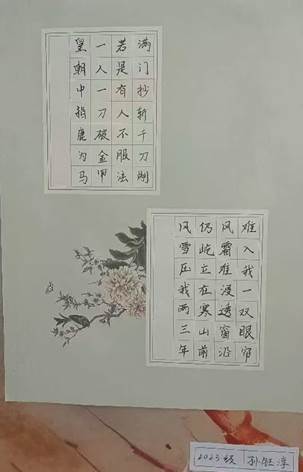 满门抄斩千刀剐
若是有人不服法
一人一刀破金甲
皇朝中指鹿为马
难入我一双眼帘
风霜难浸透窗沿
仍屹立在寒山前
风雪压我两三年
2023级 孙